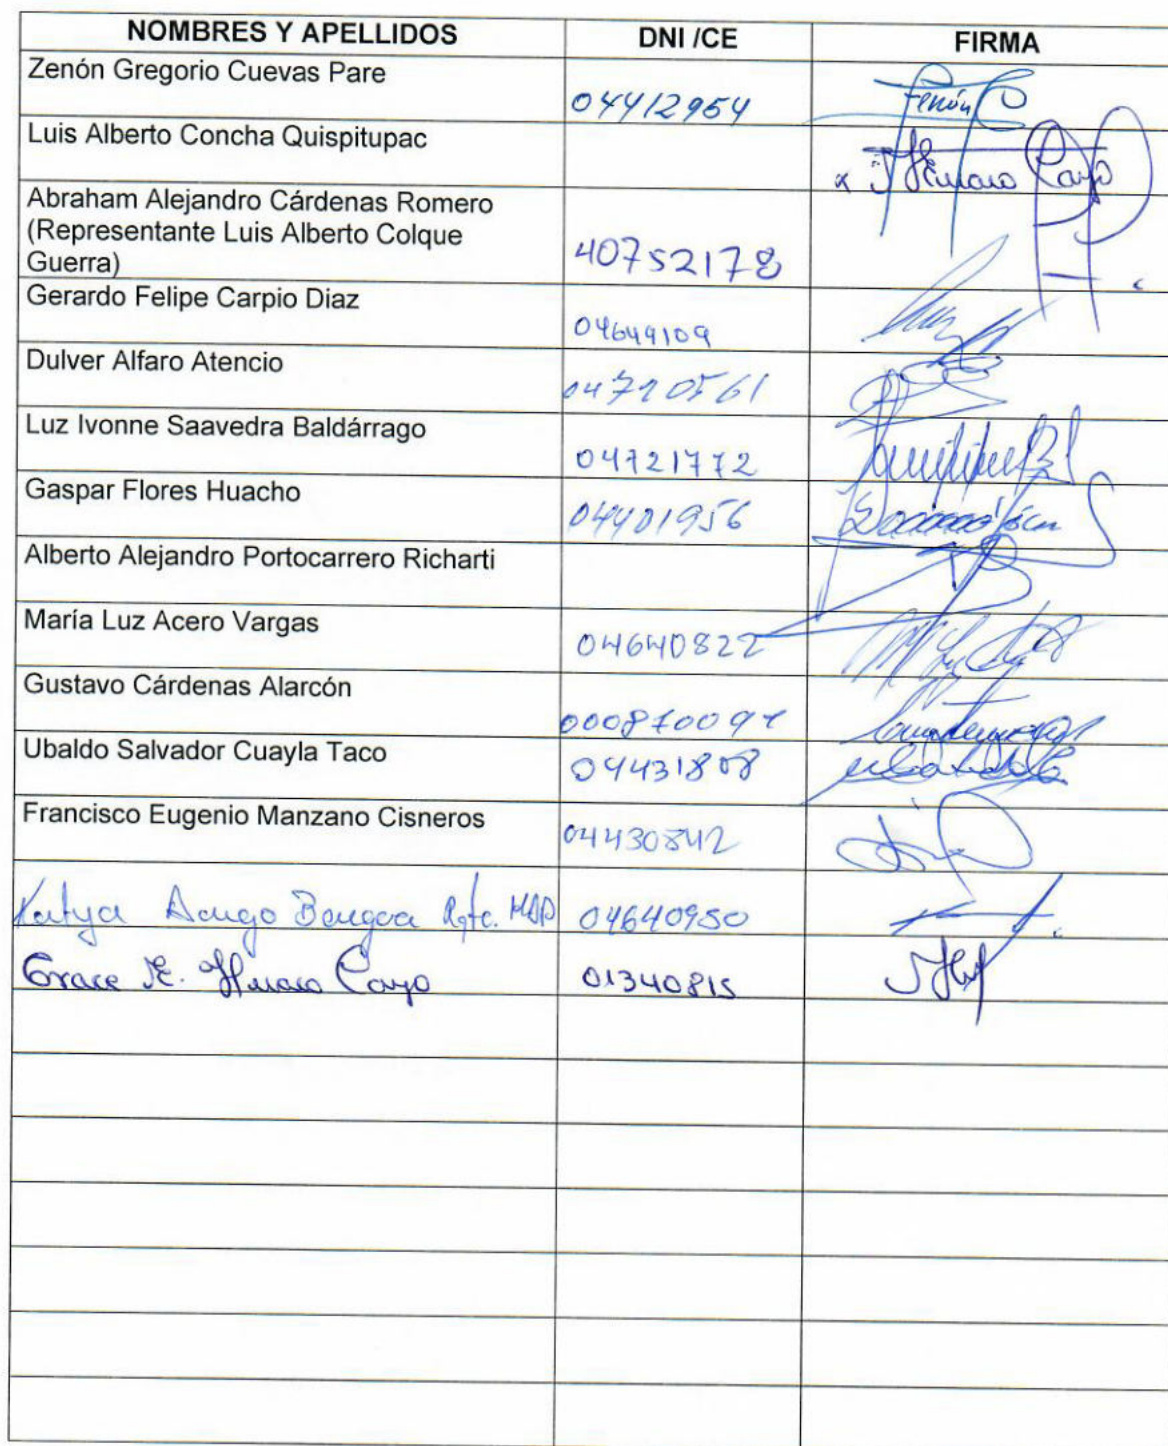 NOMBRES Y APELLIDOS DNI /CE FIRMA
Zenón Gregorio Cuevas Pare
04412954 Zenón C
Luis Alberto Concha Quispitupac
x Huaco Cayo
Abraham Alejandro Cárdenas Romero
(Representante Luis Alberto Colque
Guerra) 40752178
Gerardo Felipe Carpio Diaz
04649109
Dulver Alfaro Atencio
04720561
Luz Ivonne Saavedra Baldárrago
04721772
Gaspar Flores Huacho
04401956
Alberto Alejandro Portocarrero Richarti
María Luz Acero Vargas
04640822
Gustavo Cárdenas Alarcón
Ubaldo Salvador Cuayla Taco
04431808
Francisco Eugenio Manzano Cisneros
04430842
Katya 04640950
Grace E. Huaco Cayo 01340815